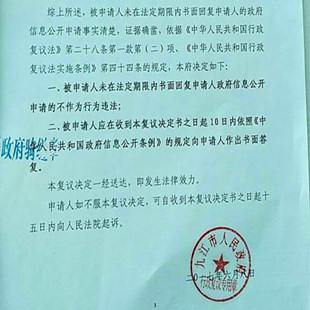 综上所述，被申请人未在法定期限内书面回复申请人的政府
信息公开申请事实清楚，证据确凿，依据《中华人民共和国行政
复议法》第二十八条第一款（二）项、《中华人民共和国行政
复议法实施条例》第四十四条的规定，本府决定如下：
一、被申请人未在法定期限内书面回复申请人政府信息公开
申请的不作为行为违法；
二、被申请人应在收到本复议决定书之日起10日内依照《中
华人民共和国政府信息公开条例》的规定向申请人作出书面答
复。
本复议决定一经送达，即发生法律效力。
申请人如不服本复议决定，可自收到本复议决定书之日起十
五日内向人民法院起诉。
九江市人民政府
行政复议专用章
二〇一七年六月八日
政府